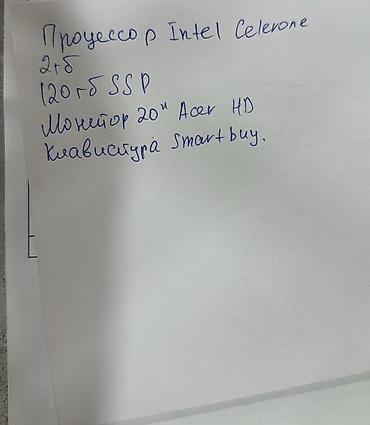 Процессор Intel Celerone
2гб
120гб SSD
Монитор 20" Acer HD
Клавиатура Smartbuy.